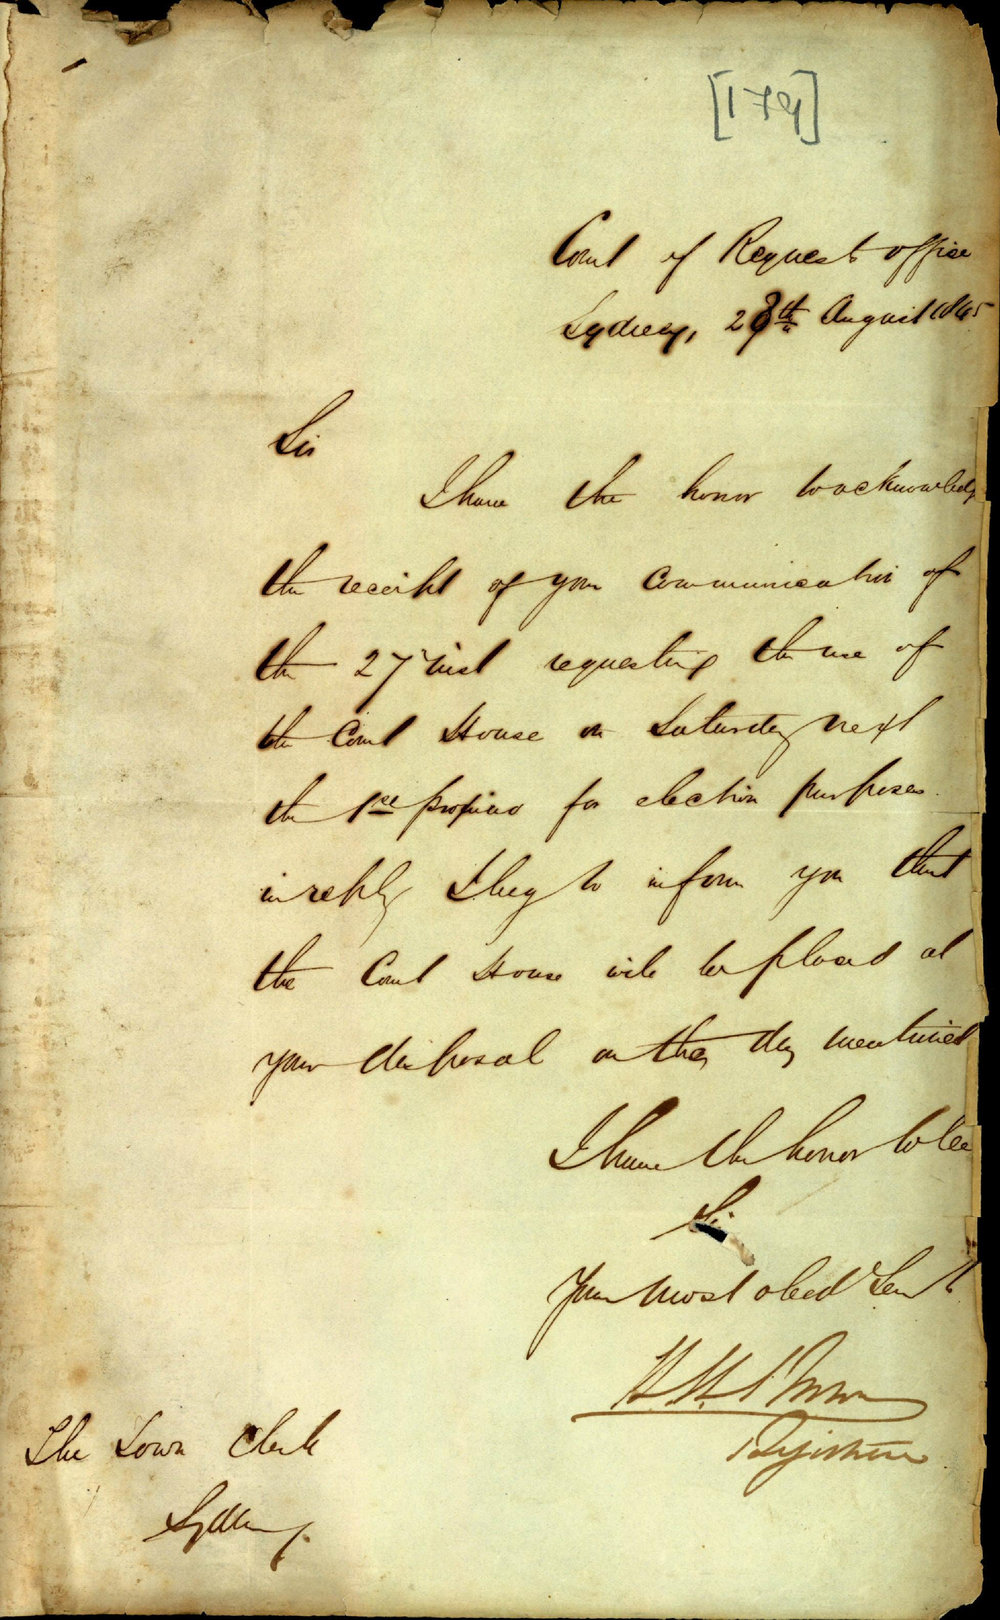 [179]
Court of Requests office
Sydney, 28th August 1845
Sir
I have the honor to acknowledge
the receipt of your Communication of
the 27 inst requesting the use of
the Court House on Saturday next
the 1st proximo for election purposes.
in reply I beg to inform you that
the Court House will be placed at
your disposal on the day mentioned
I have the honor to be
Sir
Your most obed Servt
Registrar
The Town Clerk
Sydney.